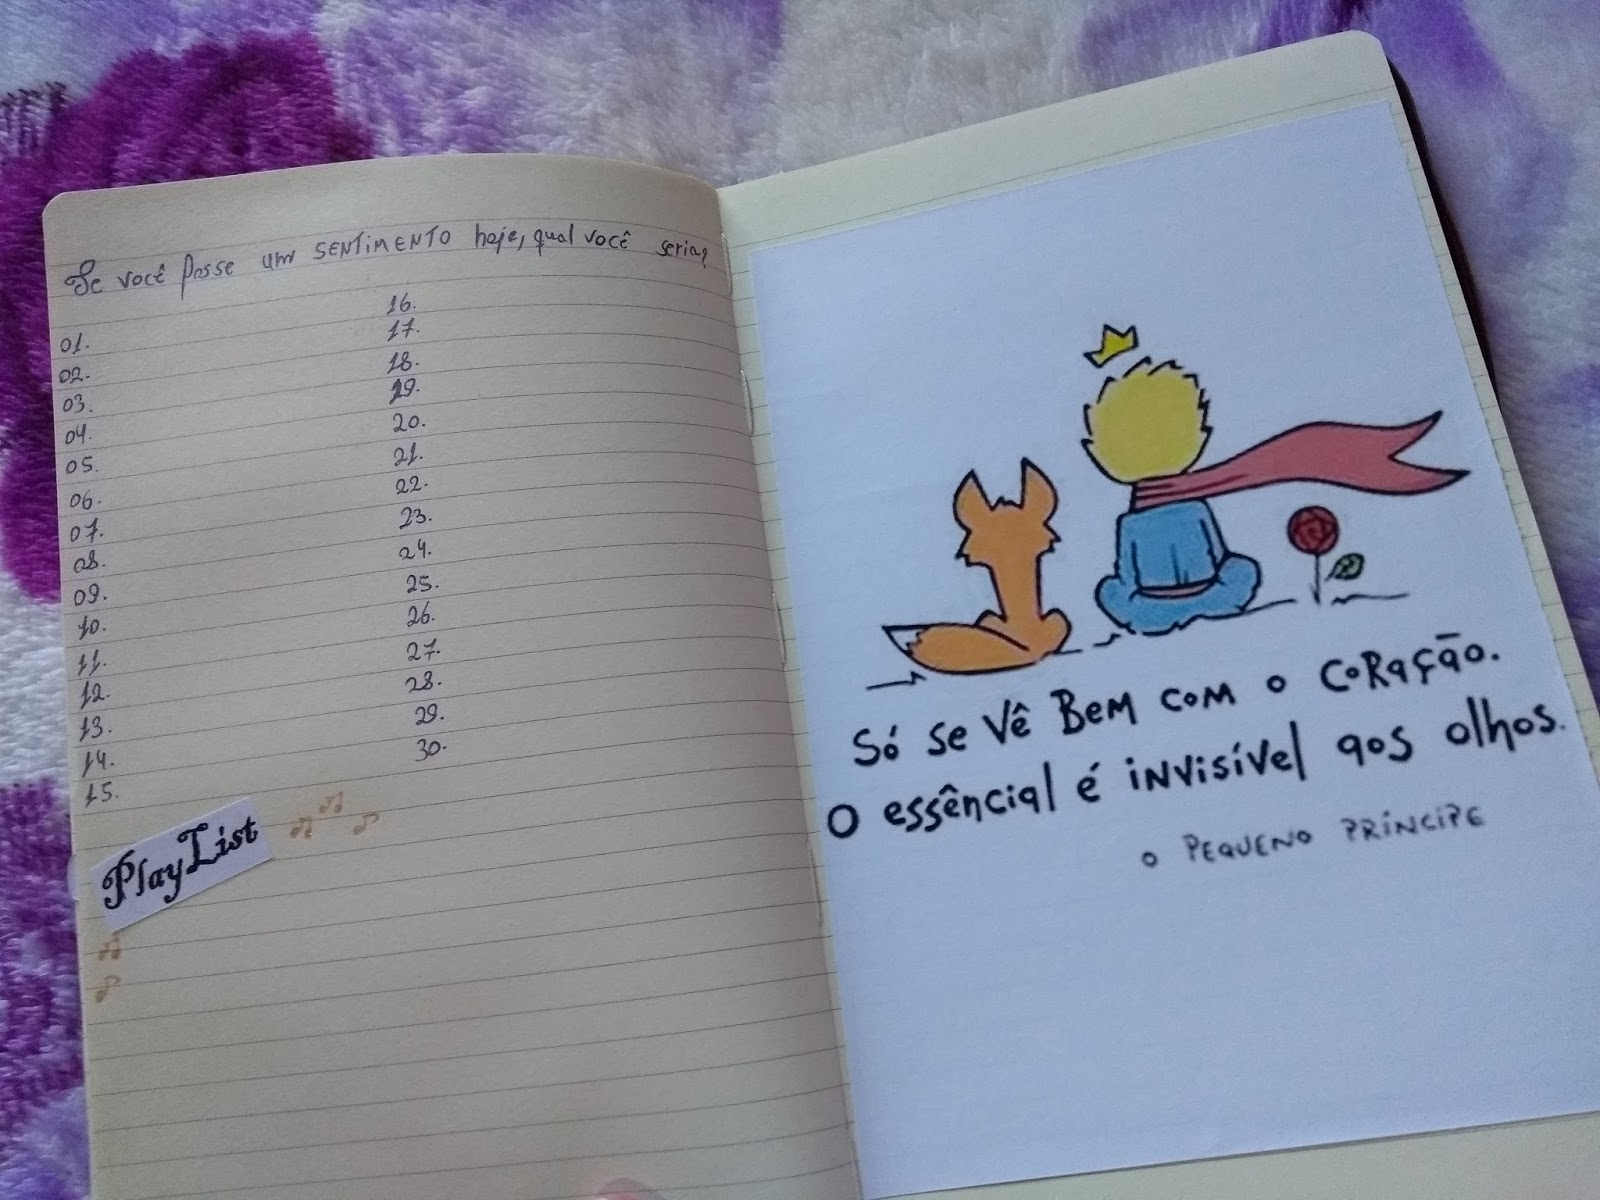 Se você fosse um SENTIMENTO hoje, qual você seria?
01.
02.
03.
04.
05.
06.
07.
08.
09.
10.
11.
12.
13.
14.
15.
16.
17.
18.
19.
20.
21.
22.
23.
24.
25.
26.
27.
28.
29.
30.
PlayList
Só se vê Bem com o coração.
O essêncial é invisível aos olhos.
O PEQUENO PRÍNCIPE